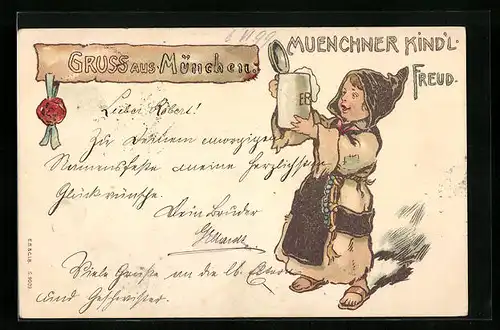 6 VI 99
GRUSS AUS München.
MUENCHNER KIND'L-
FREUD.
EB
Lieber Robert!
Zu Deinem morgigen
Namensfeste meine herzlichsten
Glückwünsche.
Dein Bruder
Viele Grüße an die lb. Eltern
und Geschwister.